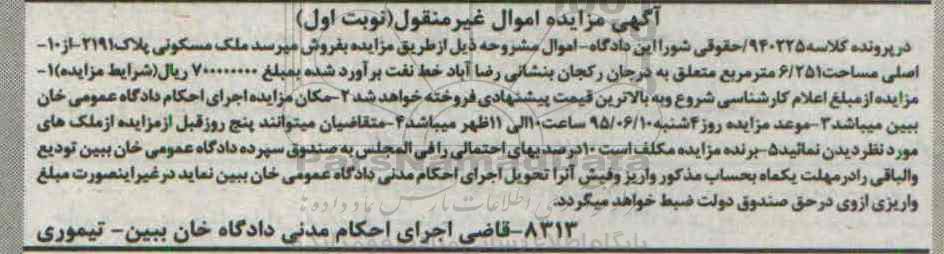 آگهی مزایده اموال غیرمنقول(نوبت اول)
درپرونده کلاسه۹۴۰۲۲۵/حقوقی شورا این دادگاه-اموال مشروحه ذیل ازطریق مزایده بفروش میرسد ملک مسکونی پلاک۲۱۹۱-از۱۰-
اصلی مساحت۶/۲۵۱ مترمربع متعلق به درجان رکجان بنشانی رضا آباد خط نفت برآورد شده بمبلغ ۷۰۰۰۰۰۰۰۰ ریال(شرایط مزایده)۱-
مزایده ازمبلغ اعلام کارشناسی شروع وبه بالاترین قیمت پیشنهادی فروخته خواهد شد۲-مکان مزایده اجرای احکام دادگاه عمومی خان
ببین میباشد۳-موعد مزایده روز۴شنبه۹۵/۰۶/۱۰ ساعت۱۰الی ۱۱ظهر میباشد۴-متقاضیان میتوانند پنج روزقبل ازمزایده ازملک های
مورد نظردیدن نمائید۵-برنده مزایده مکلف است ۱۰درصدبهای احتمالی رافی المجلس به صندوق سپرده دادگاه عمومی خان ببین تودیع
والباقی رادرمهلت یکماه بحساب مذکور واریز وفیش آنرا تحویل اجرای احکام مدنی دادگاه عمومی خان ببین نماید درغیراینصورت مبلغ
واریزی ازوی درحق صندوق دولت ضبط خواهد میگردد.
۸۳۱۳-قاضی اجرای احکام مدنی دادگاه خان ببین- تیموری
ParsNamadData